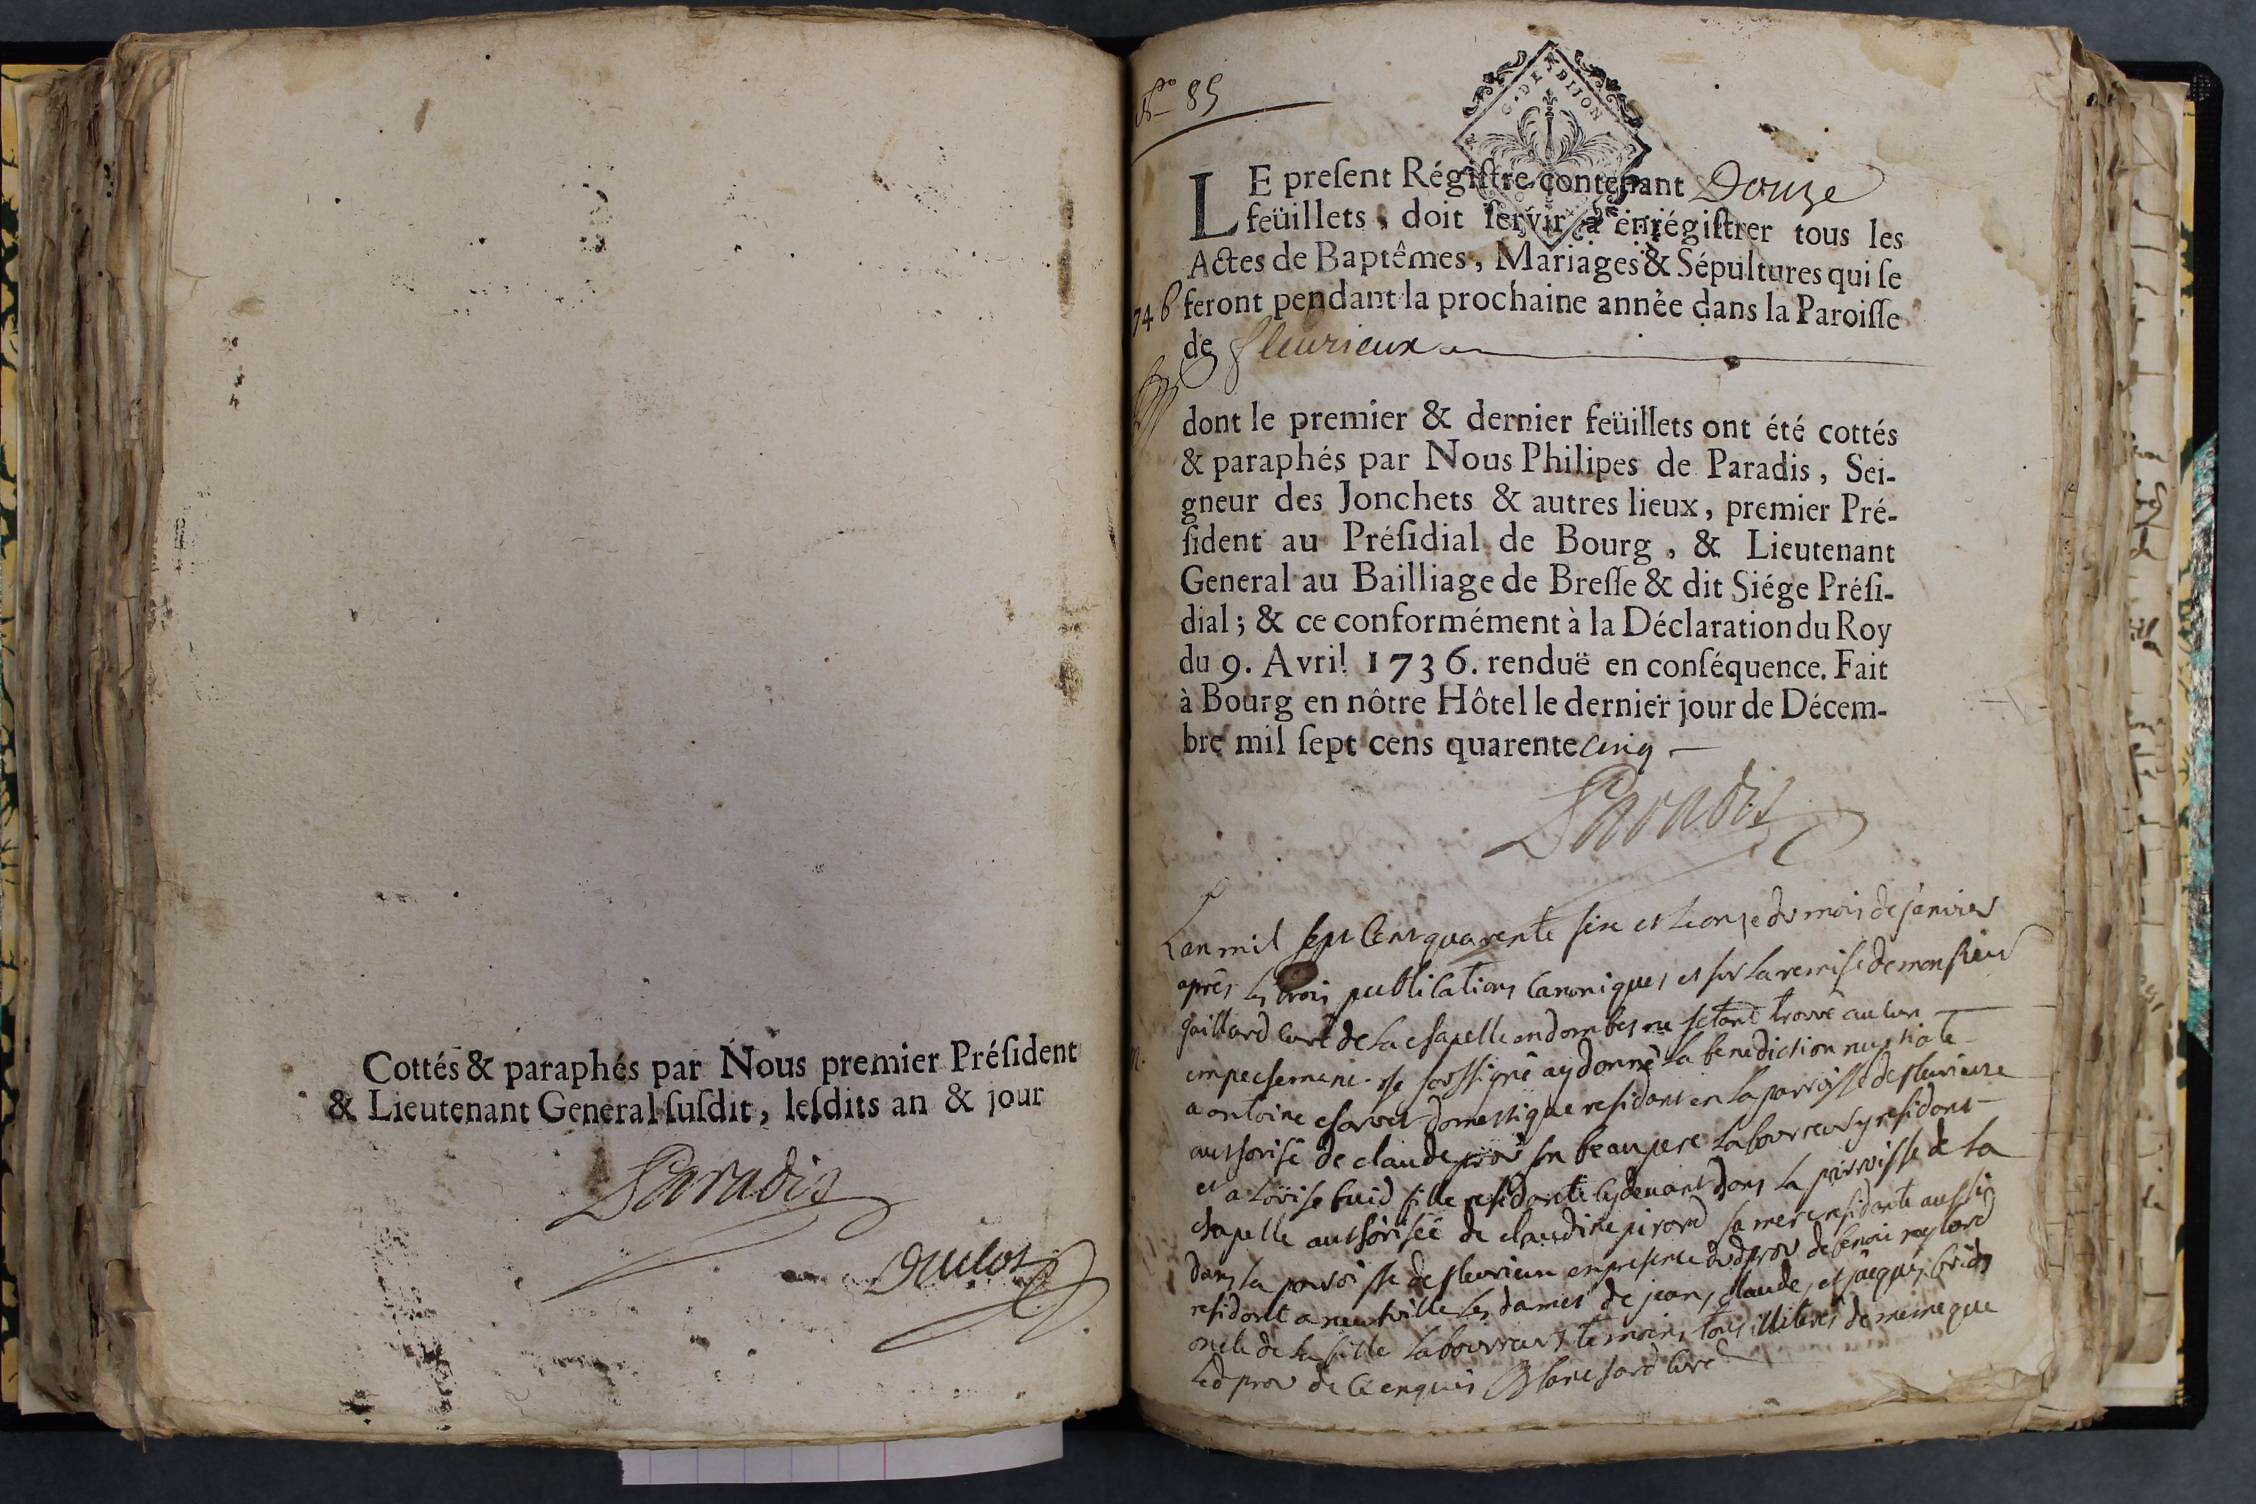 Cottés & paraphés par Nous premier Préſident
& Lieutenant General ſuſdit, leſdits an & jour
Paradis
Duclos
No 85
G. DE DIJON
LE preſent Régiſtre contenant Douze
feüillets, doit ſervir à enrégiſtrer tous les
Actes de Baptêmes, Mariages & Sépultures qui ſe
746 feront pendant la prochaine année dans la Paroiſſe
de fleurieux
dont le premier & dernier feüillets ont été cottés
& paraphés par Nous Philipes de Paradis, Sei-
gneur des Jonchets & autres lieux, premier Pré-
ſident au Préſidial de Bourg, & Lieutenant
General au Bailliage de Breſſe & dit Siége Préſi-
dial; & ce conformément à la Déclaration du Roy
du 9. Avril 1736. renduë en conſéquence. Fait
à Bourg en nôtre Hôtel le dernier jour de Décem-
bre mil ſept cens quarente cinq
Paradis
Lan mil sept cent quarente six et le onze du mois de janvier
après les trois publications canoniques et sur la remise de monsieur
gaillard curé de la chapelle en dombes ne setant trouvé aucun
empechement je soussigné ay donné la benediction nuptiale
a antoine charvet domestique residant en la parroisse de fleurieux
authorisé de claude prov son beaupere laboureur y residant
et a loüise buid fille residante cy devant dans la parroisse de la
chapelle authorisée de claudine pirond sa mere residante aussi
dans la parroisse de fleurieux en presence dud prov de benoi
residant a neufville les dames de jean, claude, et jacques buid
oncle de la fille laboureurs temoins tous illiterés de meme que
led prov de ce enquis Blanchard curé